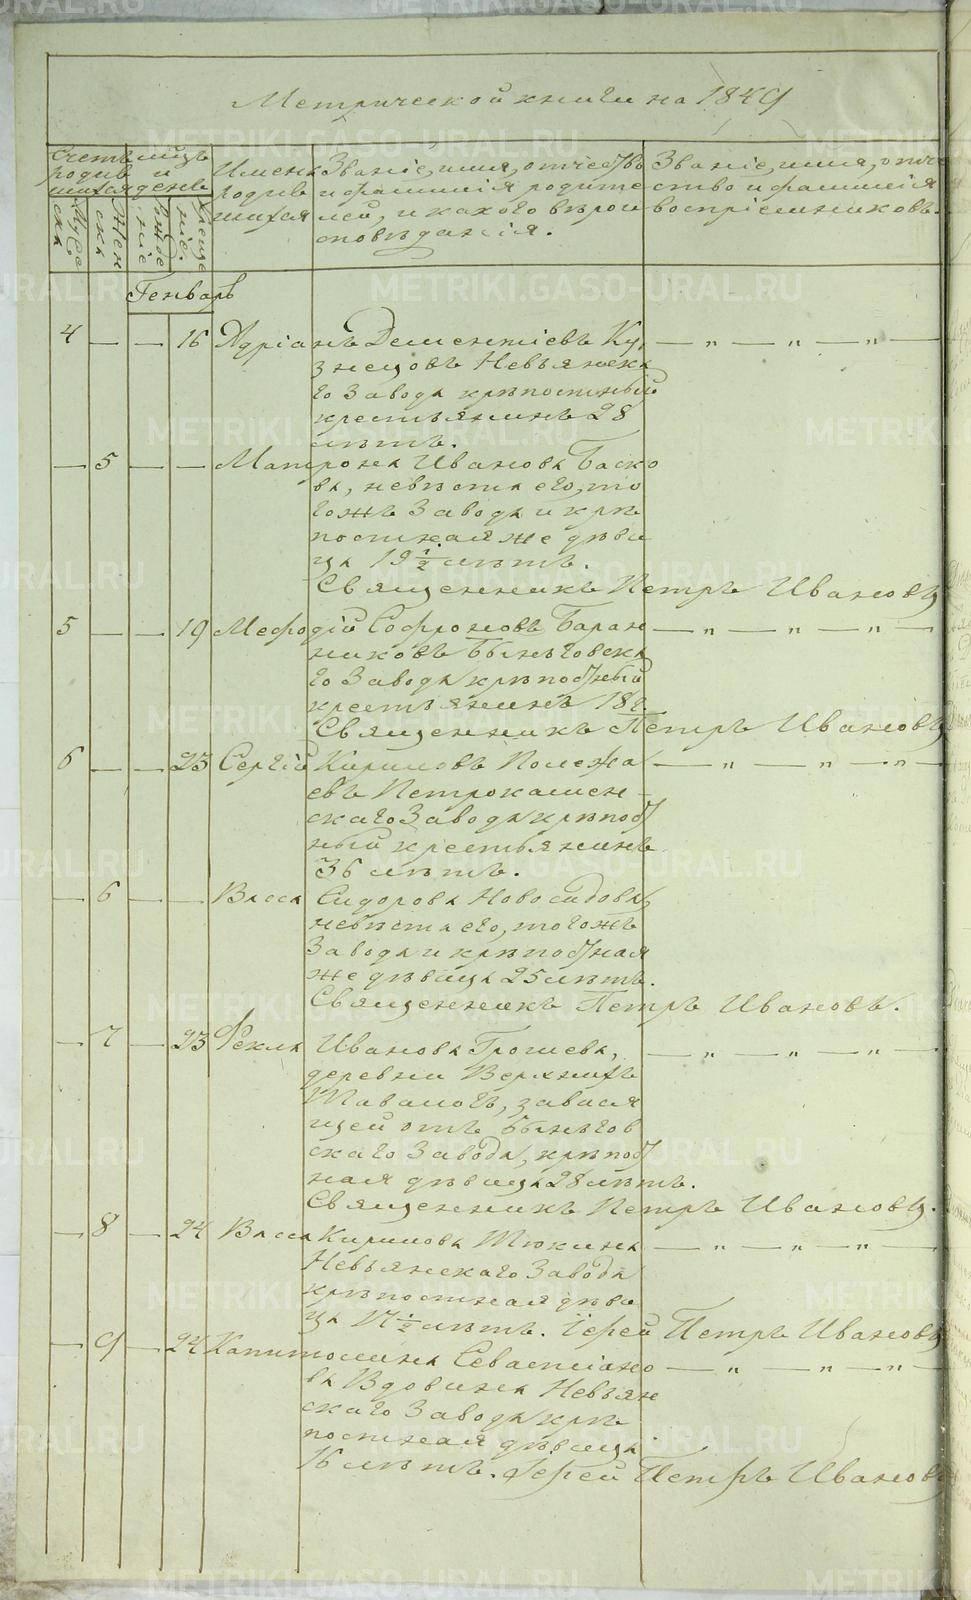 Метрической книги на 1849
Счетъ родившихся
мѣсяцъ и день
Имена родившихся
Званіе, имя, отчество и фамилія родителей, и какого вѣроисповѣданія.
Званіе, имя, отчество и фамилія воспріемниковъ.
Мужеска
Женска
Рожденіе
Крещеніе
Генварь
4 — — 16 Адріанъ Дементіевъ Ку — „ — „ — „ —
знецовъ Невьянска
го Завода крѣпостный
крестьянинъ 28
лѣтъ.
— 5 — — Матрона Иванова Баско
ва, невѣста его, то
гожъ Завода и крѣ
постная же дѣви
ца 19 ½ лѣтъ.
Священникъ Петръ Ивановъ
5 — — 19 Мефодій Софроновъ Баран — „ — „ — „ —
никовъ Быньговска
го Завода крѣпостный
крестьянинъ 18 л.
Священникъ Петръ Ивановъ
6 — — 23 Сергій Кириловъ Полежа — „ — „ — „ —
евъ Петрокамен-
скаго Завода крѣпост
ный крестьянинъ
36 лѣтъ.
— 6 — — Васса Сидорова Новосадова,
невѣста его, тогожъ
Завода и крѣпостная
же дѣвица 25 лѣтъ.
Священникъ Петръ Ивановъ.
— 7 — 23 Фекла Иванова Грошева, — „ — „ — „ —
деревни Верхнихъ
Тавологъ, завися
щей отъ Быньгов
скаго Завода, крѣпост
ная дѣвица 28 лѣтъ.
Священникъ Петръ Ивановъ.
— 8 — 24 Васса Кирилова Тюкина — „ — „ —
Невьянскаго Завода
крѣпостная дѣви
ца 17 ½ лѣтъ. Іерей Петръ Ивановъ
— 9 — 24 Капитолина Севастіано — „ — „ — „ —
ва Вдовина Невьян
скаго Завода крѣ
постная дѣвица
16 лѣтъ. Іерей Петръ Ивановъ